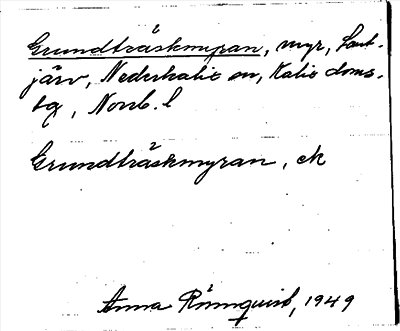 Grundträskmyran, myr, Saut-
järv, Nederkalix sn, Kalix doms.
tg, Norrb. l
Grundträskmyran, ek
Anna Rönnquist, 1949